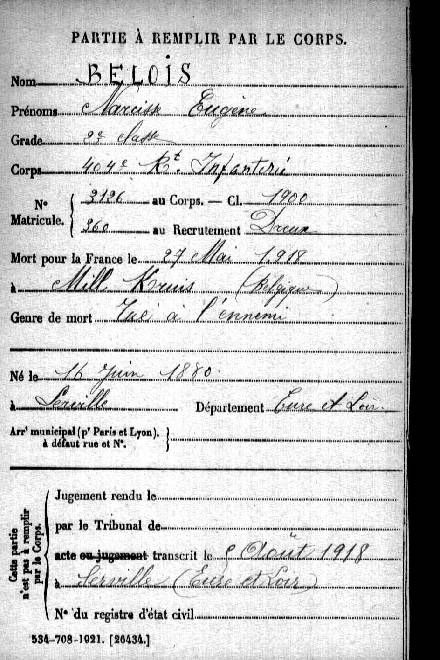 PARTIE À REMPLIR PAR LE CORPS.
Nom BELOIS
Prénoms Narcisse Eugène
Grade 2e classe
Corps 404e Rt. Infanterie
No Matricule. 3126 au Corps. — Cl. 1900
260 au Recrutement Dreux
Mort pour la France le 27 Mai 1918
à Mill Kruis (Belgique)
Genre de mort Tué à l'ennemi
Né le 16 Juin 1880
à Serville Département Eure et Loir
Arrt municipal (pr Paris et Lyon), à défaut rue et No.
Cette partie n'est pas à remplir par le Corps.
Jugement rendu le
par le Tribunal de
acte ou jugement transcrit le 5 Août 1918
à Serville (Eure et Loir)
No du registre d'état civil
534-708-1921. [26434.]